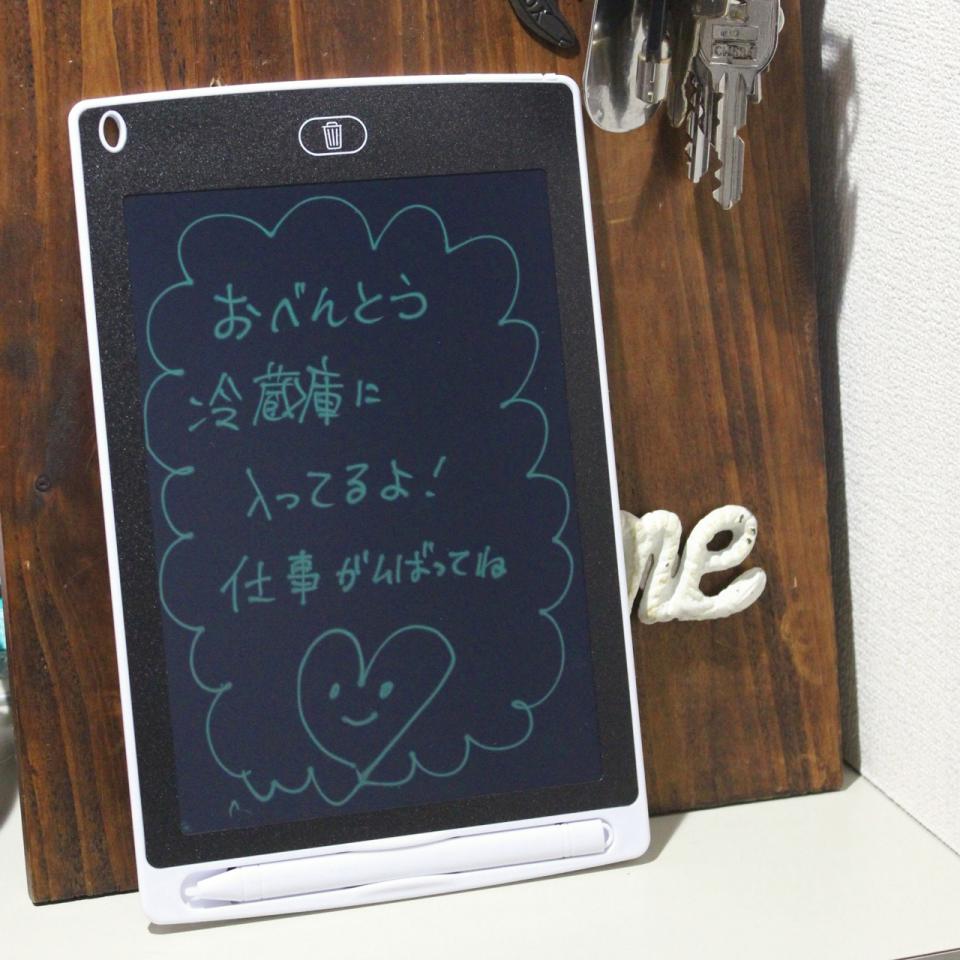 おべんとう
冷蔵庫に
入ってるよ！
仕事がんばってね
me